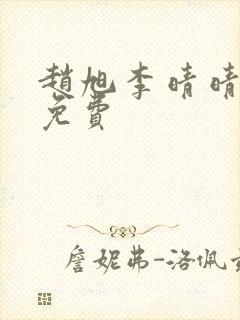 趙旭李晴晴
免費
詹妮弗-洛佩茲